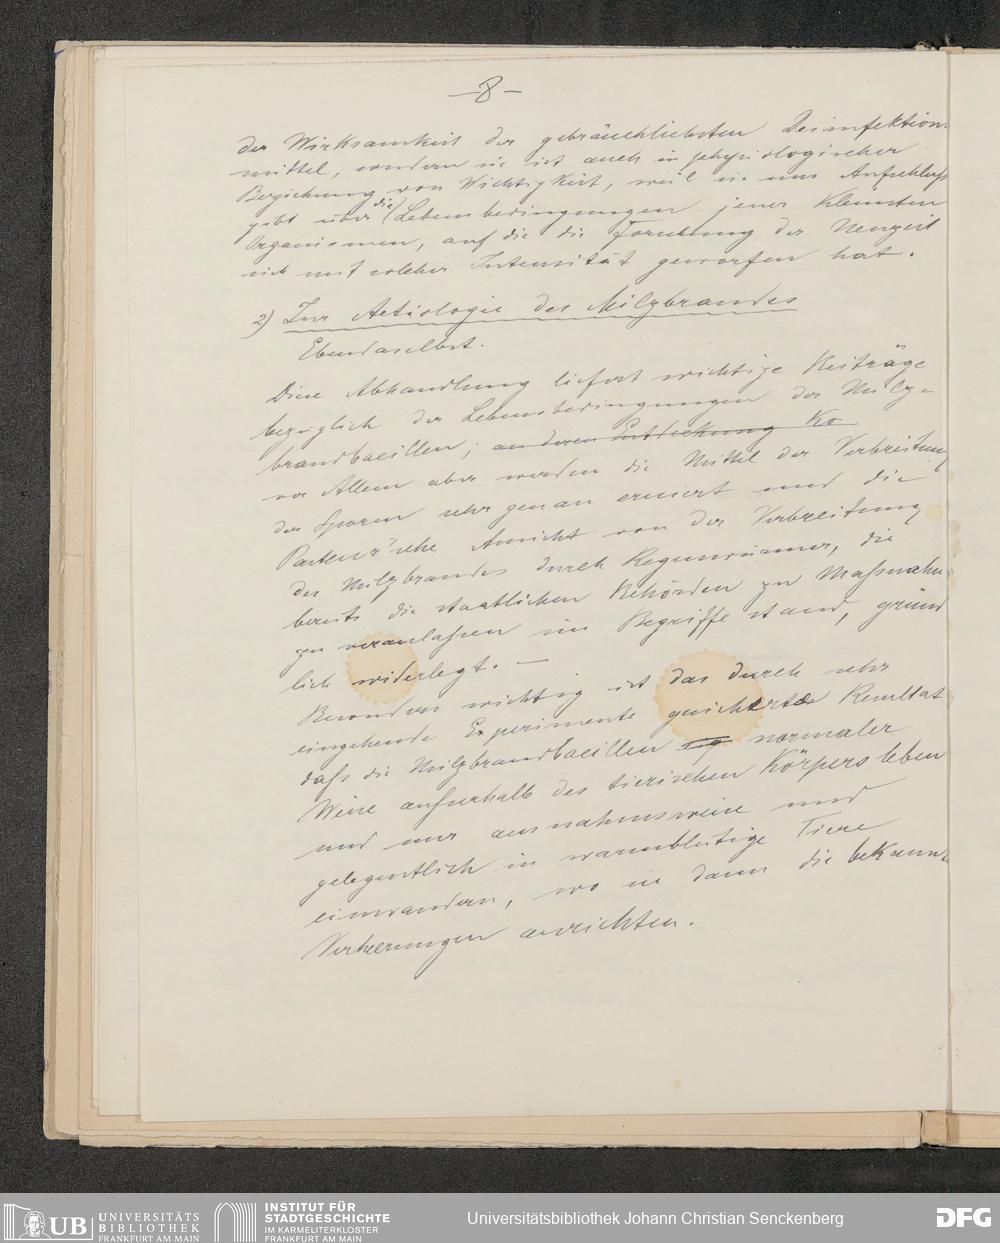 -8-
der Wirksamkeit der gebräuchlichsten Desinfektions-
mittel, sondern sie ist auch in physiologischer
Beziehung von Wichtigkeit, weil sie uns Aufschluss
gibt über die Lebensbedingungen jener kleinsten
Organismen, auf die die Forschung der Neuzeit
sich mit solcher Intensität geworfen hat.
2) Zur Aetiologie des Milzbrandes
Ebendaselbst.
Diese Abhandlung liefert wichtige Beiträge
bezüglich der Lebensbedingungen der Milz-
brandbacillen; an deren Entdeckung Ko
vor Allem aber werden die Mittel der Verbreitung
der Sporen sehr genau eruiert und die
Pasteur'sche Ansicht von der Verbreitung
des Milzbrandes durch Regenwürmer, die
bereits die staatlichen Behörden zu Massnahmen
zu veranlassen im Begriffe stand, gründ
lich widerlegt. —
Besonders wichtig ist das durch sehr
eingehende Experimente gesicherte Resultat
dass die Milzbrandbacillen normaler
Weise ausserhalb des tierischen Körpers leben
und nur ausnahmsweise und
gelegentlich in warmblütige Tiere
einwandern, wo sie dann die bekannten
Verheerungen anrichten.
UB UNIVERSITÄTS
BIBLIOTHEK
FRANKFURT AM MAIN
INSTITUT FÜR
STADTGESCHICHTE
IM KARMELITERKLOSTER
FRANKFURT AM MAIN
Universitätsbibliothek Johann Christian Senckenberg
DFG